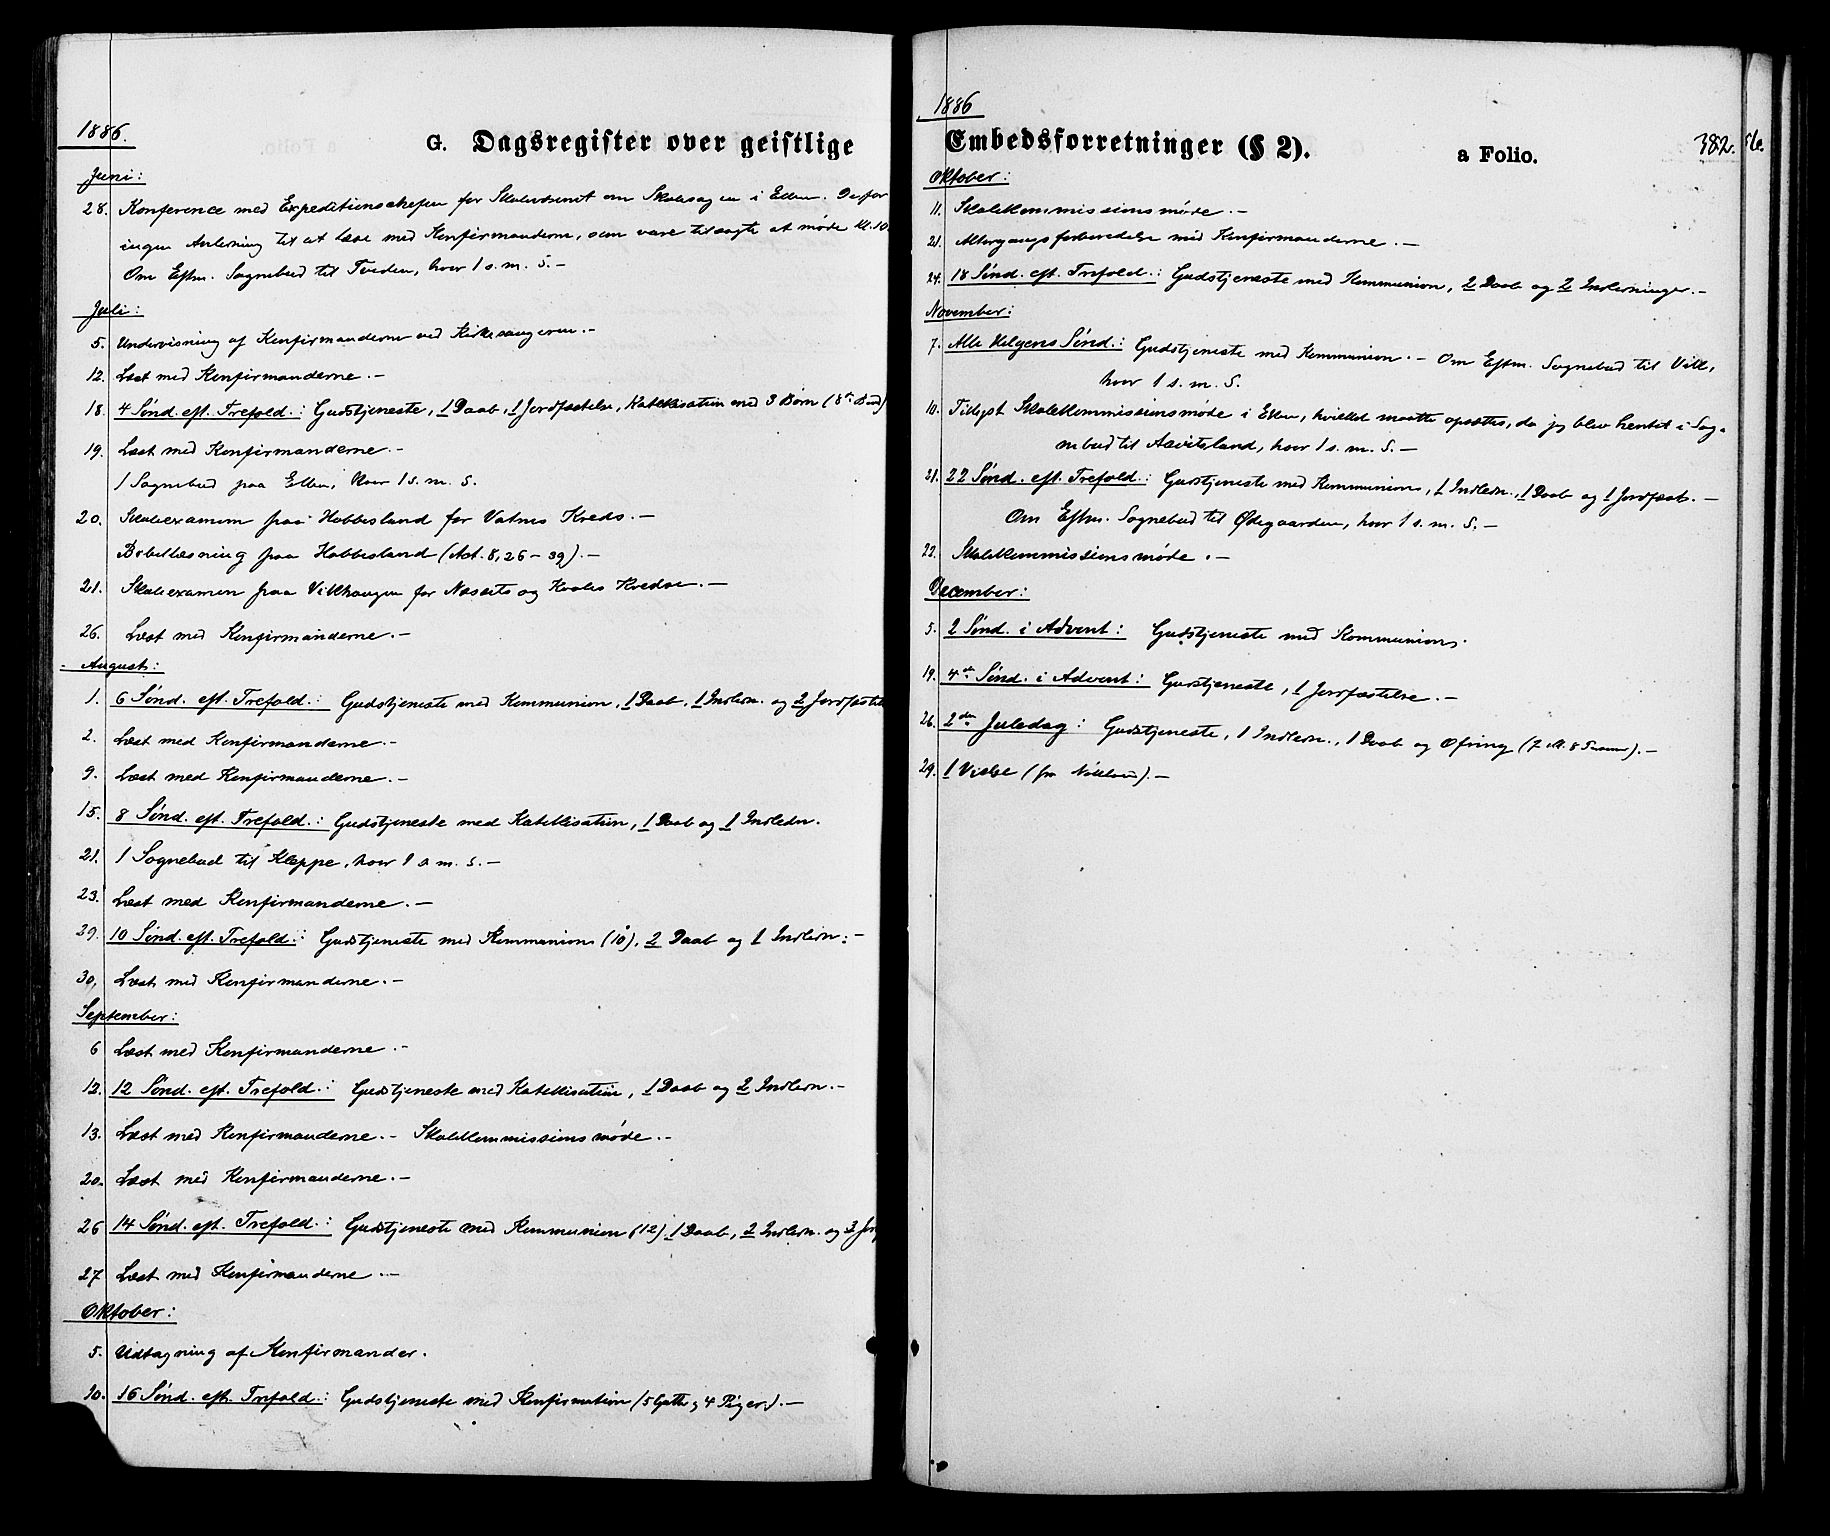 1886.
G. Dagsregister over geistlige
Juni:
28. Konference med Expeditionschefen for Skolevæsenet om Skolesagen i Eiken. Derfor
ingen Anledning til at læse med Konfirmanderne, som vare tilsagte at møde Kl. 10.
Om Eftm. Sognebud til Tveden, hvor 1 s. m. S. –
Juli:
5. Undervisning af Konfirmanderne ved Kirkesangeren. –
12. Læst med Konfirmanderne. –
18. 4 Sønd. eft. Trefold.: Gudstjeneste, 1 Daab, 1 Jordfæstelse, Katekisation med 3 Børn (8de Bud)
19. Læst med Konfirmanderne. –
1 Sognebud paa hvor 1 s. m. S.
20. Skoleexamen paa Hobbesland for Vatnes Kreds. –
Bibellæsning paa Hobbesland (Act. 8, 26 – 39). –
21. Skoleexamen paa Vikhaugen for og Kredse. –
26. Læst med Konfirmanderne. –
August:
1. 6 Sønd. eft. Trefold.: Gudstjeneste med Kommunion, 1 Daab, 1 Indledn. og 2 Jordfæstel
2. Læst med Konfirmanderne. –
9. Læst med Konfirmanderne. –
15. 8 Sønd. eft. Trefold.: Gudstjeneste med Katekisation, 1 Daab og 1 Indledn.
21. 1 Sognebud til Kleppe, hvor 1 s. m. S. –
23. Læst med Konfirmanderne. –
29. 10 Sønd. eft. Trefold.: Gudstjeneste med Kommunion (10), 2 Daab og 1 Indledn. –
30. Læst med Konfirmanderne. –
September:
6 Læst med Konfirmanderne. –
12. 12 Sønd. eft. Trefold.: Gudstjeneste med Katekisation, 1 Daab og 2 Indledn. –
13. Læst med Konfirmanderne. – Skolekommissionsmøde. –
20. Læst med Konfirmanderne. –
26 14 Sønd. eft. Trefold.: Gudstjeneste med Kommunion (12), 1 Daab, 2 Indledn. og 3 Jor
27 Læst med Konfirmanderne. –
Oktober:
5. Udtagning af Konfirmander.
10. 16 Sønd. eft. Trefold.: Gudstjeneste med Konfirmation (5 Gutter, 4 Piger). –
1886
Embedsforretninger (§ 2).
a Folio.
382.
Oktober:
11. Skolekommissionsmøde. –
21. Altergangsforberedelse med Konfirmanderne. –
24. 18 Sønd. eft. Trefold.: Gudstjeneste med Kommunion, 2 Daab og 2 Indledninger. –
November:
7. Alle Helgens Sønd.: Gudstjeneste med Kommunion. – Om Eftm. Sognebud til Vik,
hvor 1 s. m. S.
10. Tillyst Skolekommissionsmøde i hvilket maatte opsættes, da jeg blev hentet i Sog-
nebud til Aavitsland, hvor 1 s. m. S. –
21. 22 Sønd. eft. Trefold.: Gudstjeneste med Kommunion, 1 Indledn., 1 Daab og 1 Jordfæst. –
Om Eftm. Sognebud til Ødegaarden, hvor 1 s. m. S. –
22. Skolekommissionsmøde. –
December:
5. 2 Sønd. i Advent: Gudstjeneste med Kommunion.
19. 4de Sønd. i Advent: Gudstjeneste, 1 Jordfæstelse. –
26. 2den Juledag: Gudstjeneste, 1 Indledn., 1 Daab og Ofring –
29. 1 Vielse –